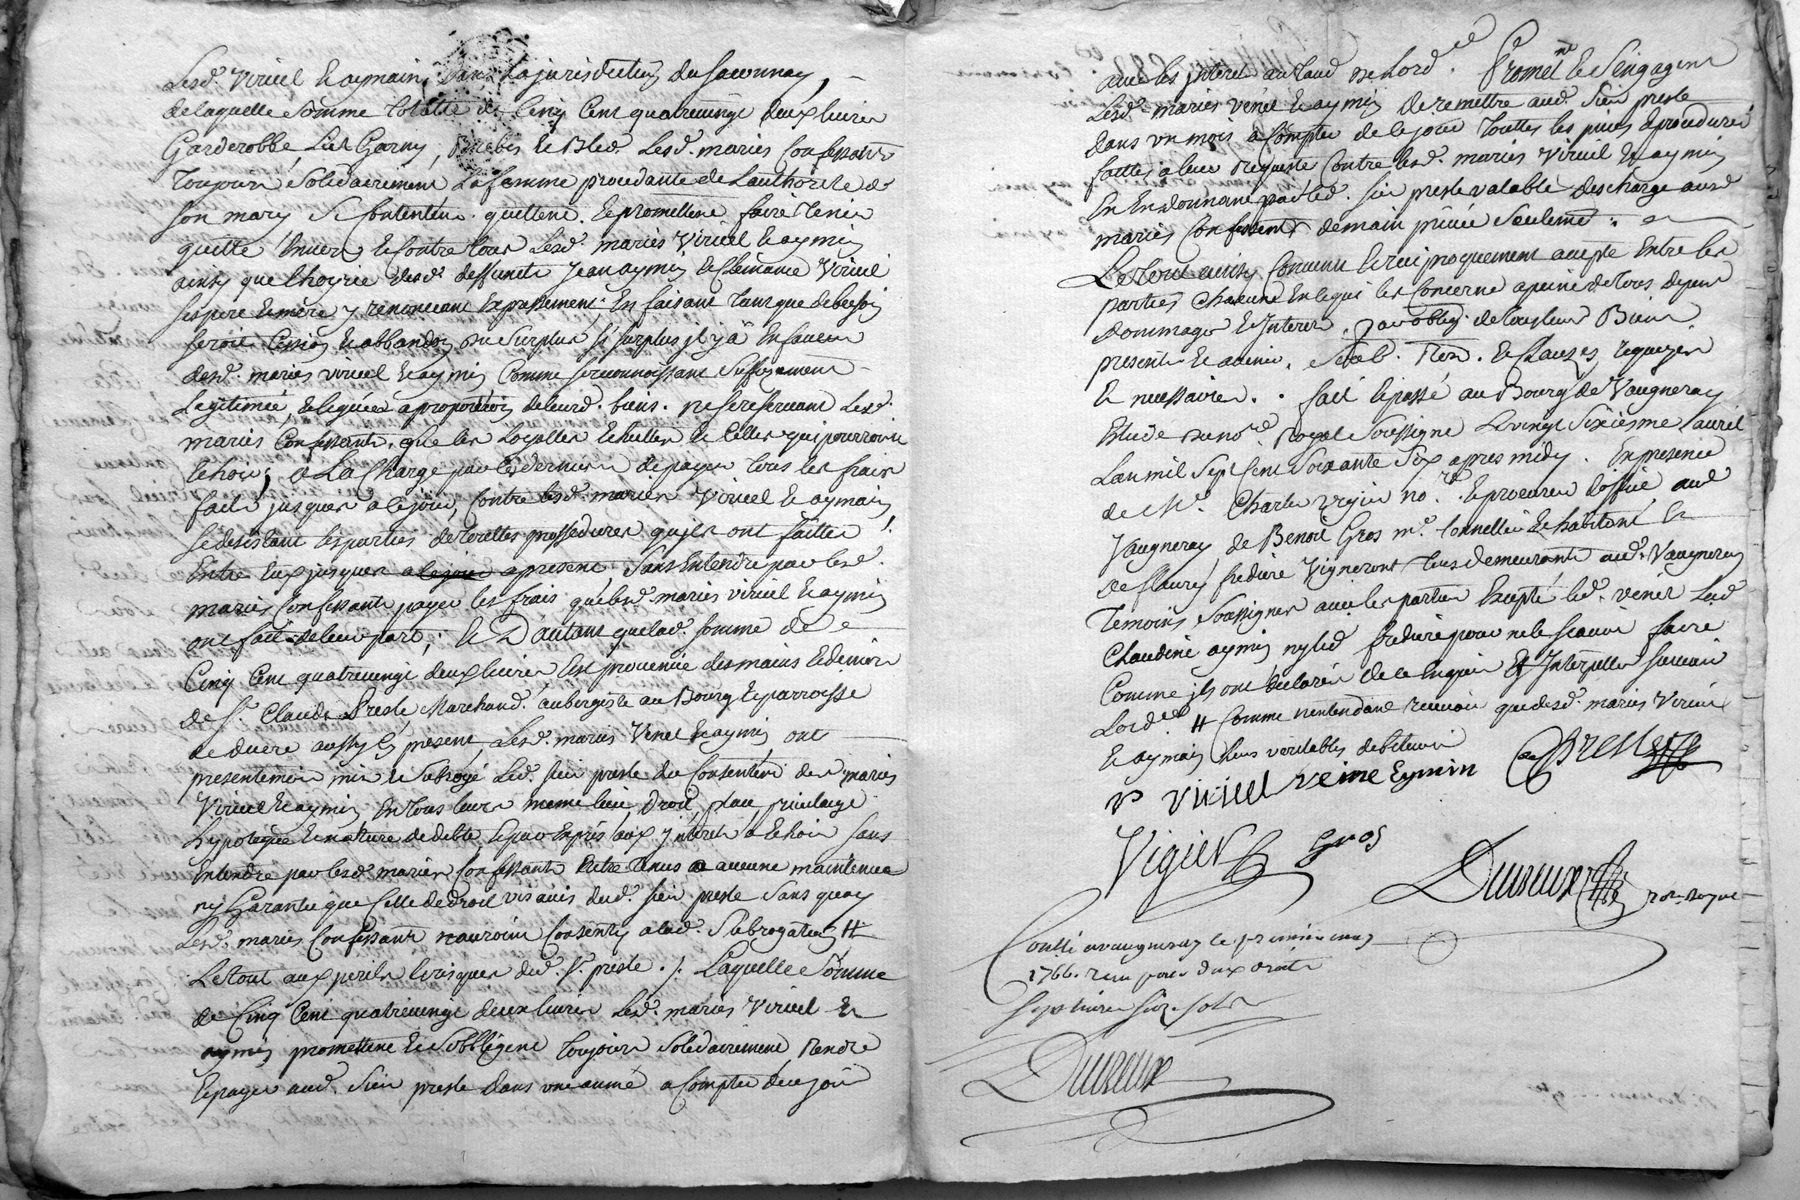 Lesd. Viricel et aymain, dans la jurisdiction du Savonnay,
de laquelle somme totalle de Cinq Cent quatrevingt deux livres
Garderobbe, Lict Garny, Brebis et Bled. Lesd. mariés Confessants
toujours Solidairement La femme procedante de Lauthorité de
son mary se Contentent. quittent. et promettent faire tenir
quitte Envers et Contre tous Lesd. mariés Viricel et aymin
ainsy que lhoyrie desd. deffunets Jean aymin et Clemance Viricel
ses pere et mere y renonceant Expressement; En faisant tant que de besoin
seroit Cession et abbandon du Surplus si surplus il y a En faveur
desd. mariés viricel et aymin Comme se reconnoissant Suffisament
Legitimée, et legüée a proportion de leurd. biens. ne se reservant Lesd.
mariés Confessants, que les Loyalles Echuttes et Celles qui pourroint
Echoir; a La Charge par les derniers de payer tous les frais
faits jusques a ce jour, Contre lesd. mariés Viricel et aymain
se desistant les parties de touttes prossedures quils ont faittes
Entre Eux jusques a ce jour apresent Sans Entendre par lesd.
mariés Confessants payer les frais que lesd. mariés viricel et aymin
ont fait de leur part; et D'autant que lad. somme de
Cinq Cent quatrevingt deux livres Est provenüe des mains et deniers
de Sr. Claude Preste Marchand. aubergiste au Bourg et parroisse
de duere aussy Cy present, Lesd. mariés Venet et aymin ont
presentement mis et Subrogé Led. sieur preste du Consentement des mariés
Viricel et aymin En tous leurs meme lieu, Droit, place, privilaige
hypoteque et nature de debte, et par Exprés aux jnterets a Echoir sans
Entendre par lesd. mariés Confessants Estre tenus a aucune maintenüe
ny Garantie que Celle de droit vis avis dud. sieur preste Sans quoy
Lesd. mariés Confessants nauroint Consenty a lad. Subrogation #
Le tout aux perils et risques dud. Sr. preste ./. Laquelle Somme
de Cinq Cent quatrevingt deux livres Lesd. mariés Viricel et
aymin promettent et Sobbligent toujours Solidairement, Rendre
Et payer aud. Sieur preste dans une année a Compter de ce jour
avec les jnterets au taud de Lord.ce Promettent et Sengagent
Lesd. mariés venet et aymin de remettre aud. Sieur preste
dans un mois a Compter de ce jour Touttes les pieces et procedures
faittes a leur Requeste Contre lesd. mariés Viricel et aymin
En En donnant par led. sieur preste valable descharge auxd.
mariés Confessents de main privée Seulement. &
Le tout ainsy Convenu et reciproquement accepté Entre les
parties Chacune En ce qui les Concerne a peine de tous depens
dommages et jnterets. par oblig. de tous leurs Biens
presents et avenir. Soub. Ren. et Clauses requises
et necessaires. fait et passé au Bourg de Vaugneray
Etude du no.re Royal Soussigné Le vingt Sixiesme avril
Lan mil Sept Cent Soixante Six apres midy. En presence
de Me. Charles vigier no.re et procureur doffice aud.
Vaugneray de Benoit Gros me. tonnellier et habitant et
de fleury frediere Vigneront tous demeurants aud. Vaugneray
Temoins Soussignes avec les parties Excepté led. venet Lad.
Claudine aymin ny led. frediere pour ne le scavoir faire
Comme ils ont declarés de ce Enquis et Interpellés suivant
Lord.ce # Comme n'entendant recevoir que desd. mariés Viricel
et aymain Leurs veritables debiteurs
V Viricel Veine Eymin C Preste
Vigier Gros
Dureux not. Royal
Conllé a vaugneray le premier may
1766. recu pour deux droits
sept livres six sols
Dureux